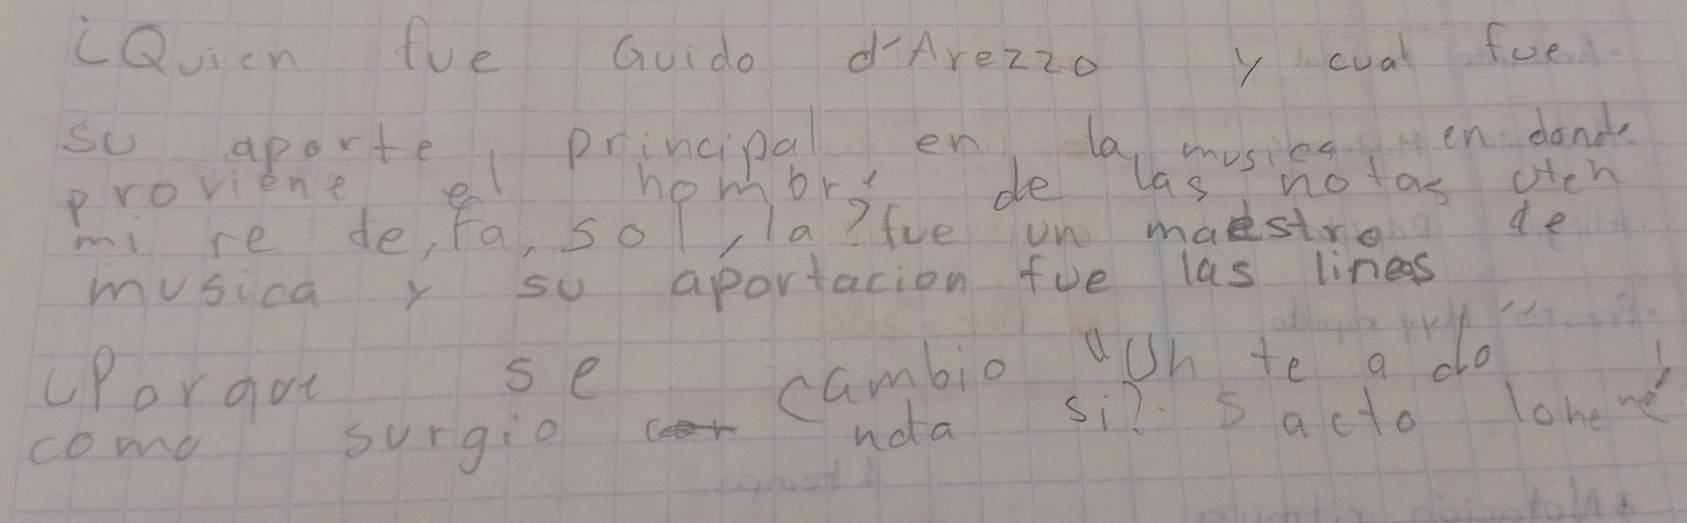 ¿Quien fue Guido d'Arezzo y cual fue
su aporte, principal en la musica en donde
proviene el nombre de las notas uten
mi re de, fa, sol, la? fue un maestro de
musica y su aportacion fue las lineas
¿Porque se cambio "Uh te a do
como surgio nota si? Sacto Iohene